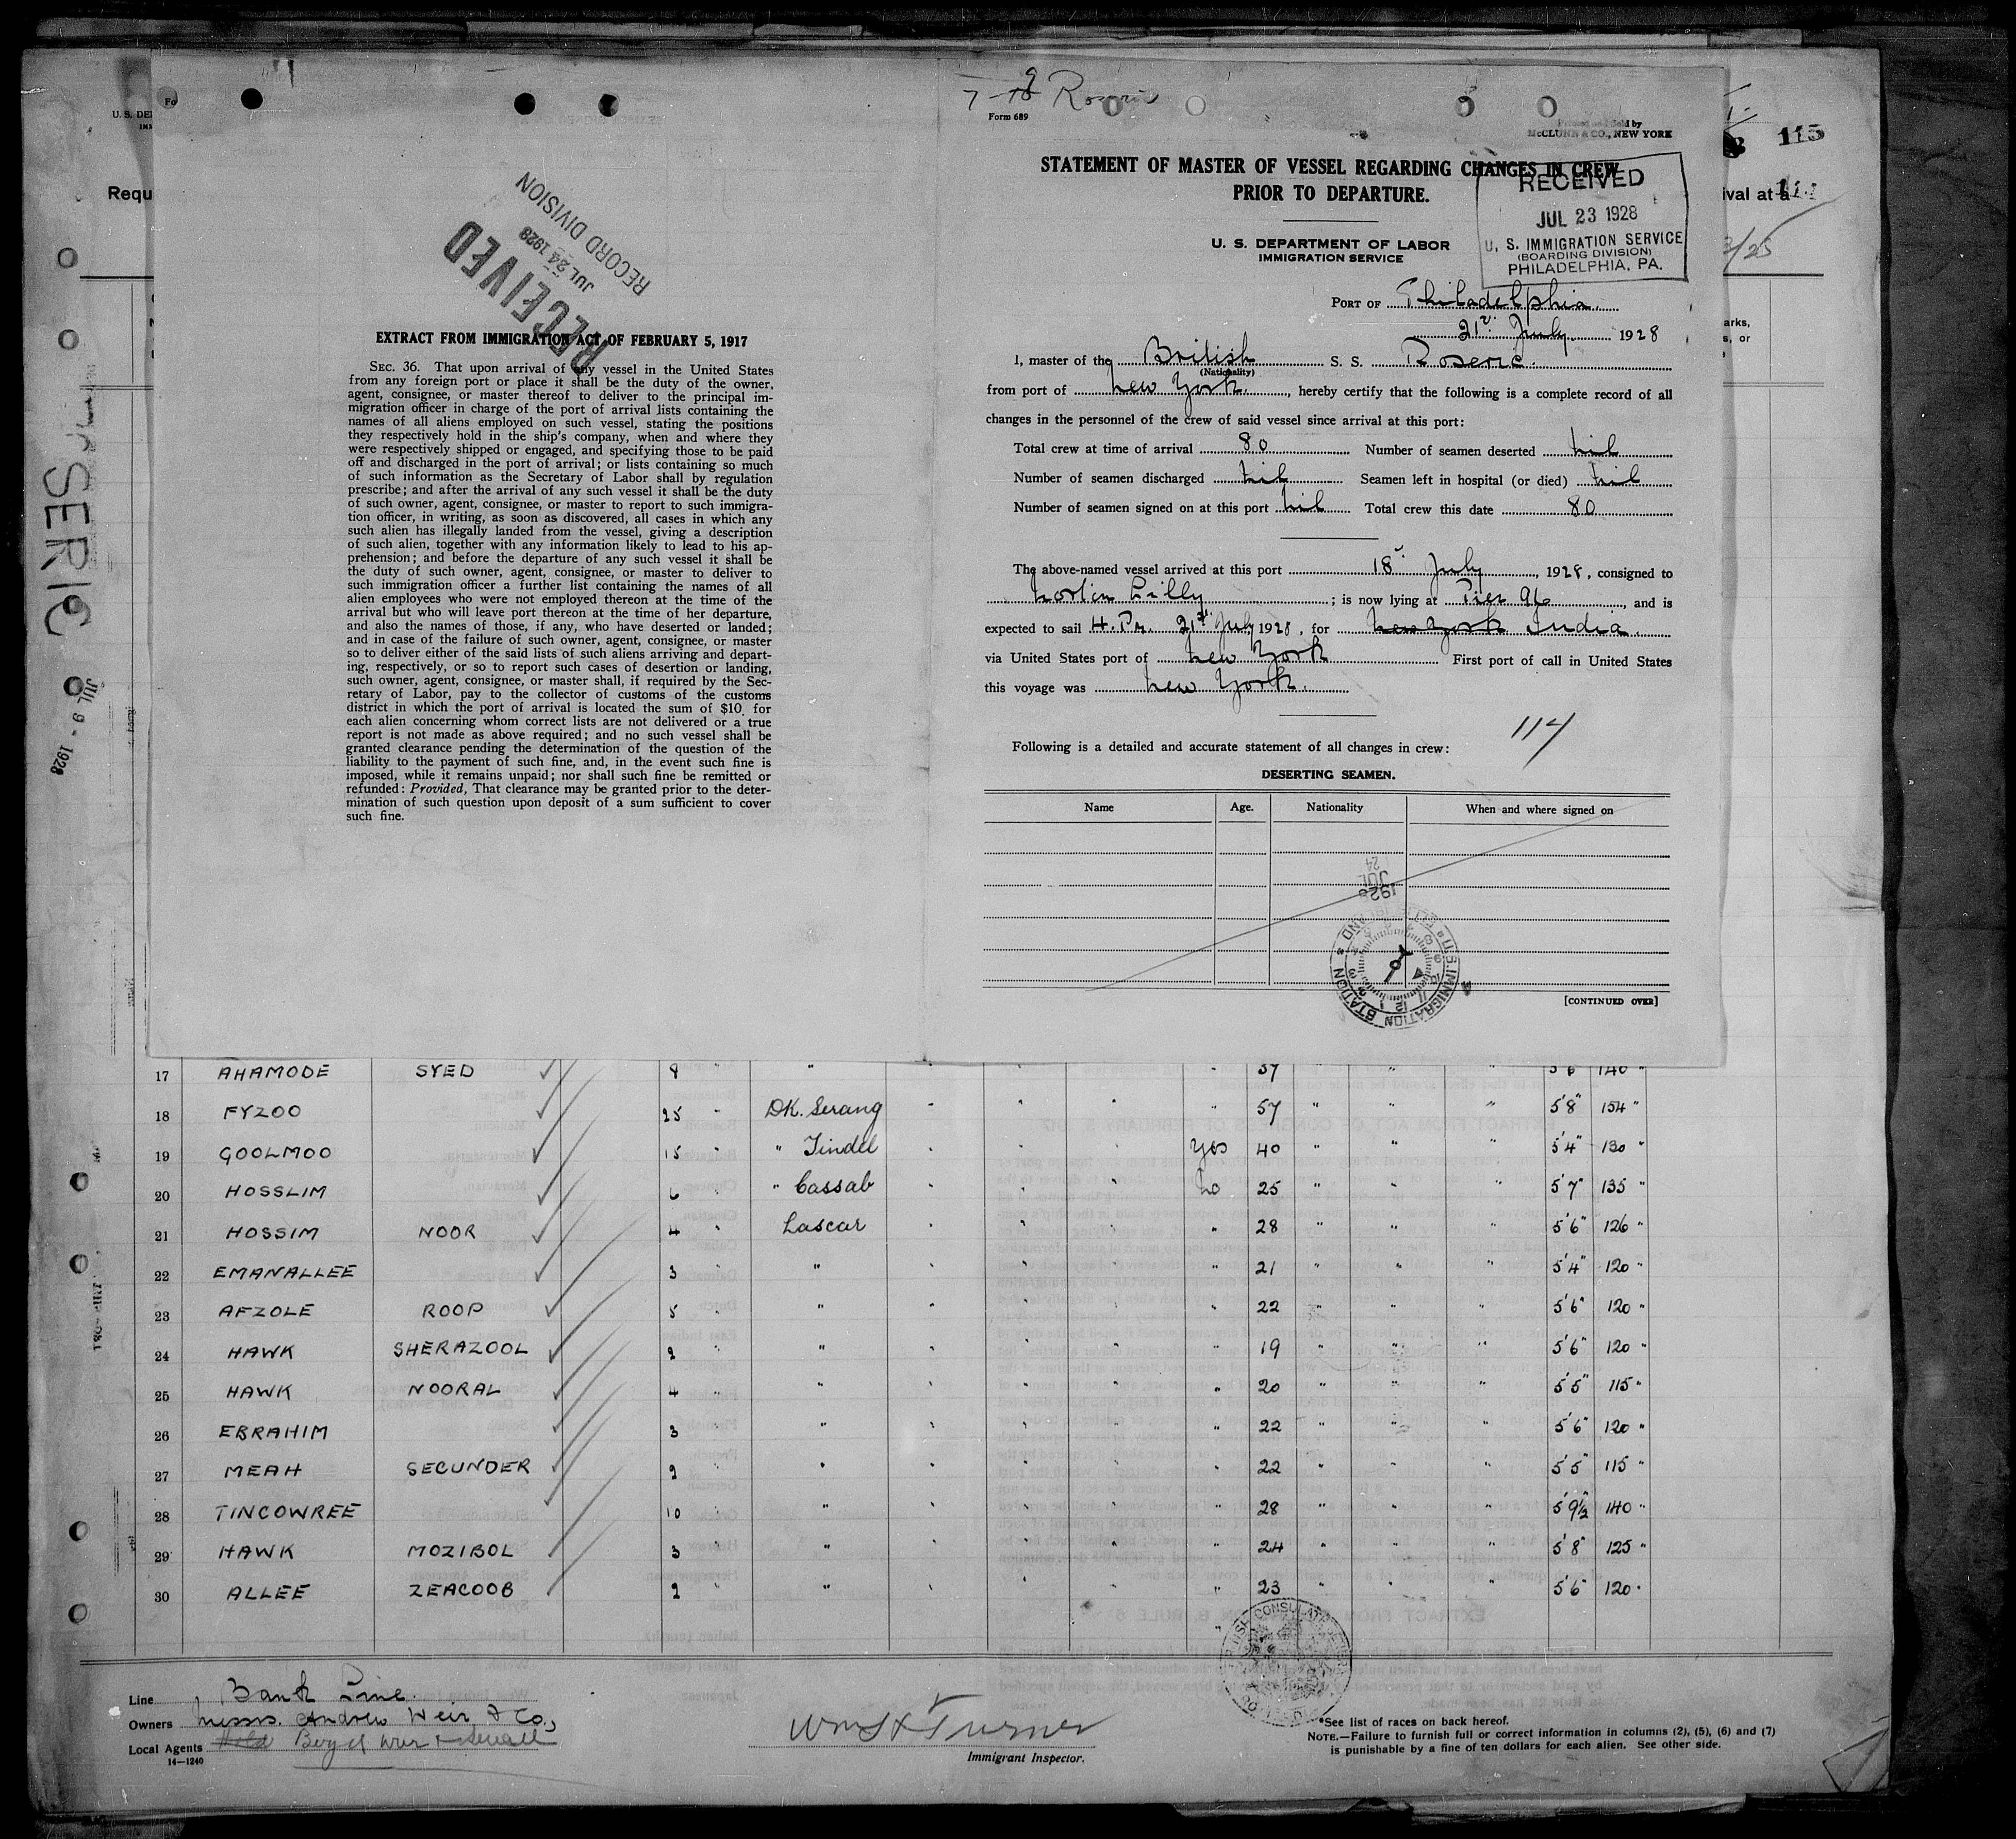 7-9 Roseric
Form 689
McCLUNN & CO., NEW YORK
115
114
U. S. DE
Requ
ival at a
3/25
arks,
s, or
STATEMENT OF MASTER OF VESSEL REGARDING CHANGES IN CREW
PRIOR TO DEPARTURE.
RECEIVED
JUL 23 1928
U. S. IMMIGRATION SERVICE
(BOARDING DIVISION)
PHILADELPHIA, PA.
U. S. DEPARTMENT OF LABOR
IMMIGRATION SERVICE
PORT OF Philadelphia.
21st July 1928
I, master of the British S. S. Roseric.
(Nationality)
from port of New York, hereby certify that the following is a complete record of all
changes in the personnel of the crew of said vessel since arrival at this port:
Total crew at time of arrival 80 Number of seamen deserted Nil
Number of seamen discharged Nil Seamen left in hospital (or died) Nil
Number of seamen signed on at this port Nil Total crew this date 80
The above-named vessel arrived at this port 18 July, 1928, consigned to
Norton Lilly; is now lying at Pier 96, and is
expected to sail 4. Pm. 21st July 1928, for New York India.
via United States port of New York First port of call in United States
this voyage was New York.
114
Following is a detailed and accurate statement of all changes in crew:
DESERTING SEAMEN.
Name Age. Nationality When and where signed on
JUL 24 1928
U. S. IMMIGRATION STATION
[CONTINUED OVER]
RECEIVED
JUL 24 1928
RECORD DIVISION
EXTRACT FROM IMMIGRATION ACT OF FEBRUARY 5, 1917
SEC. 36. That upon arrival of any vessel in the United States
from any foreign port or place it shall be the duty of the owner,
agent, consignee, or master thereof to deliver to the principal im-
migration officer in charge of the port of arrival lists containing the
names of all aliens employed on such vessel, stating the positions
they respectively hold in the ship's company, when and where they
were respectively shipped or engaged, and specifying those to be paid
off and discharged in the port of arrival; or lists containing so much
of such information as the Secretary of Labor shall by regulation
prescribe; and after the arrival of any such vessel it shall be the duty
of such owner, agent, consignee, or master to report to such immigra-
tion officer, in writing, as soon as discovered, all cases in which any
such alien has illegally landed from the vessel, giving a description
of such alien, together with any information likely to lead to his ap-
prehension; and before the departure of any such vessel it shall be
the duty of such owner, agent, consignee, or master to deliver to
such immigration officer a further list containing the names of all
alien employees who were not employed thereon at the time of the
arrival but who will leave port thereon at the time of her departure,
and also the names of those, if any, who have deserted or landed;
and in case of the failure of such owner, agent, consignee, or master
so to deliver either of the said lists of such aliens arriving and depart-
ing, respectively, or so to report such cases of desertion or landing,
such owner, agent, consignee, or master shall, if required by the Sec-
retary of Labor, pay to the collector of customs of the customs
district in which the port of arrival is located the sum of $10 for
each alien concerning whom correct lists are not delivered or a true
report is not made as above required; and no such vessel shall be
granted clearance pending the determination of the question of the
liability to the payment of such fine, and, in the event such fine is
imposed, while it remains unpaid; nor shall such fine be remitted or
refunded: Provided, That clearance may be granted prior to the deter-
mination of such question upon deposit of a sum sufficient to cover
such fine.
SERIC
JUL 9 - 1928
17 AHAMODE SYED 8 " " " 37 5'6 140 "
18 FYZOO 25 " DK. Serang " " " 57 " " " 5'8" 154 "
19 GOOLMOO 15 " " Tindel " " Yes 40 " " " 5'4" 130 "
20 HOSSLIM 6 " " Cassab " " No 25 " " " 5'7" 135 "
21 HOSSIM NOOR 4 " Lascar " " " 28 " " " 5'6" 126 "
22 EMANALLEE 3 " " " " " 21 " " " 5'4" 120 "
23 AFZOLE ROOP 5 " " " " " 22 " " " 5'6" 120 "
24 HAWK SHERAZOOL 2 " " " " " 19 " " " 5'6" 120 "
25 HAWK NOORAL 4 " " " " " 20 " " " 5'5" 115 "
26 EBRAHIM 3 " " " " " 22 " " " 5'6" 120 "
27 MEAH SECUNDER 2 " " " " " 22 " " " 5'5" 115 "
28 TINCOWREE 10 " " " " " 28 " " " 5'9½" 140 "
29 HAWK MOZIBOL 3 " " " " " 24 " " " 5'8" 125 "
30 ALLEE ZEACOOB 2 " " " " " 23 " " " 5'6" 120 "
Line Bank Line.
Owners Messrs. Andrew Weir & Co.,
Local Agents Boyd Weir & Sewell
14—1240
Wm S Turner
Immigrant Inspector.
*See list of races on back hereof.
NOTE.—Failure to furnish full or correct information in columns (2), (5), (6) and (7)
is punishable by a fine of ten dollars for each alien. See other side.